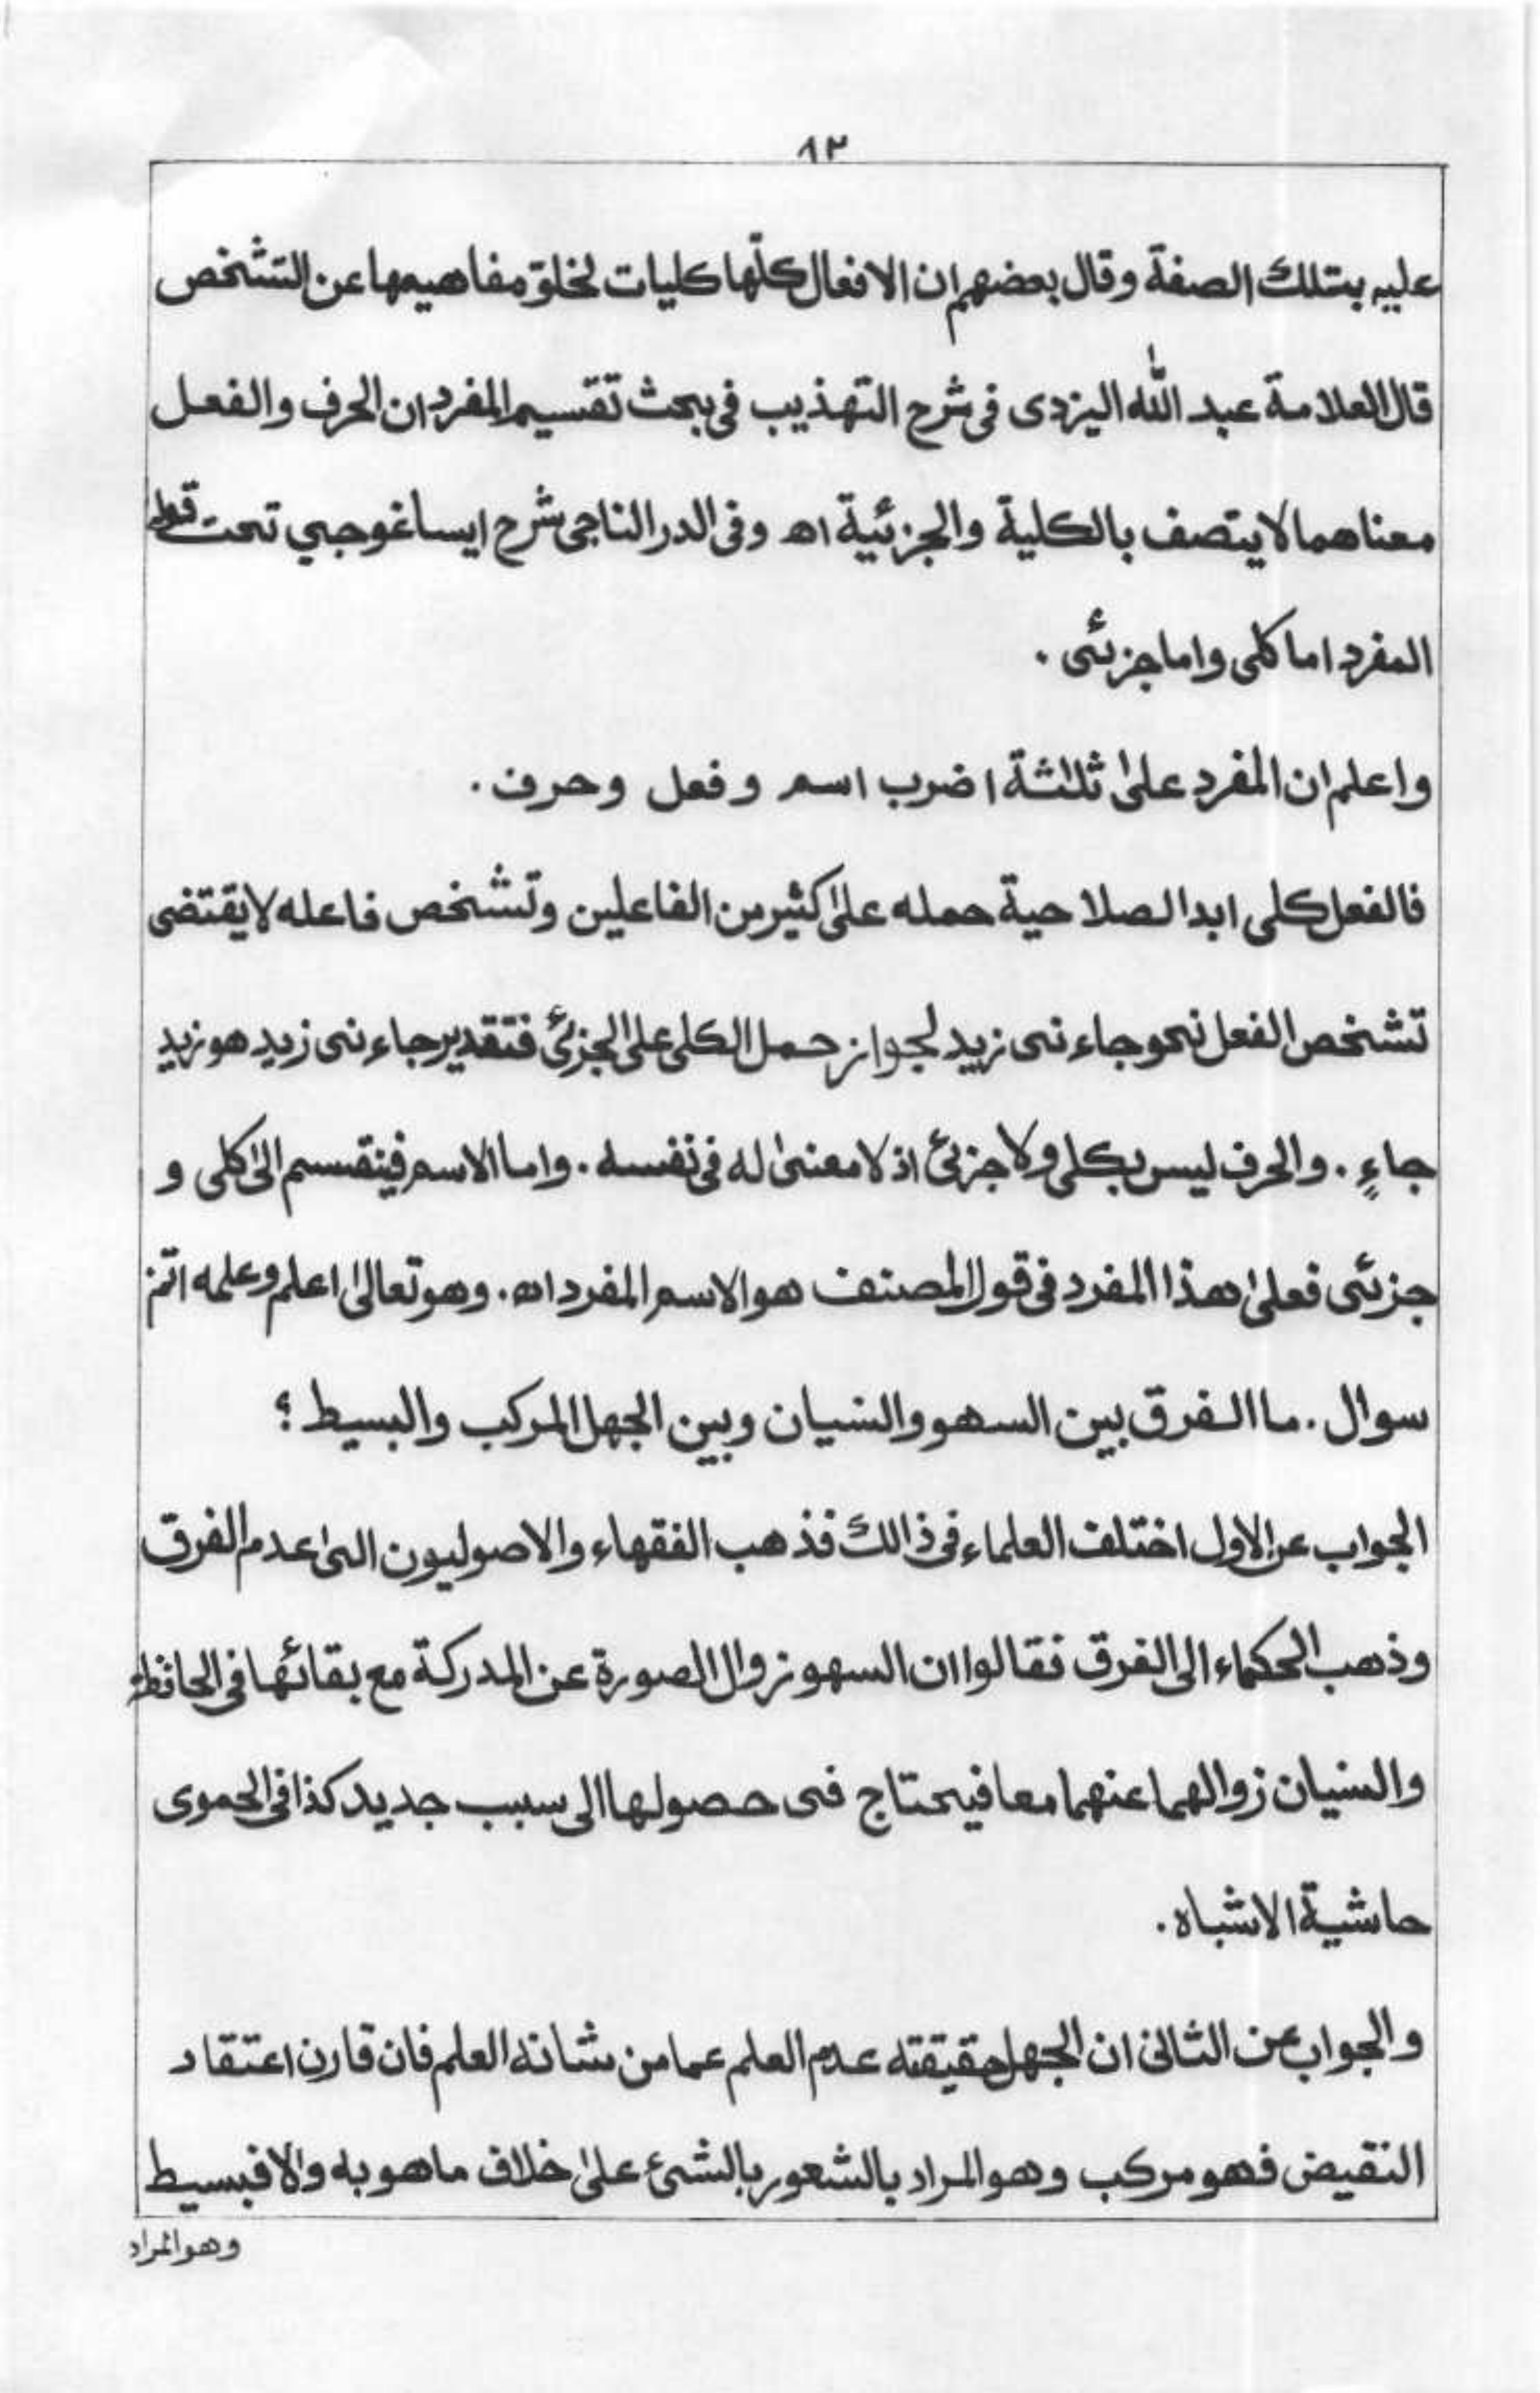 ٨٣
عليه بتلك الصفة وقال بعضهم ان الافعال كلّها كليات لخلوّ مفاهيمها عن التشخص
قال العلامة عبد الله اليزدى فى شرح التهذيب فى بحث تقسيم المفرد ان الحرف والفعل
معناهما لا يتصف بالكلية والجزئية اه وفى الدر الناجى شرح ايساغوجي تحت قوله
المفرد اما كلى واما جزئى .
واعلم ان المفرد علىٰ ثلاثة اضرب اسم وفعل وحرف .
فالفعل كلى ابدا لصلاحية حمله علىٰ كثير من الفاعلين وتشخص فاعله لا يقتضى
تشخص الفعل نحو جاءنى زيد لجواز حمل الكلى على الجزئى فتقدير جاءنى زيد هو زيد
جاءٍ . والحرف ليس بكلى ولا جزئى اذ لا معنىٰ له فى نفسه . واما الاسم فينقسم الىٰ كلى و
جزئى فعلىٰ هذا المفرد فى قول المصنف هو الاسم المفرد اه . وهو تعالىٰ اعلم وعلمه اتم
سوال . ما الفرق بين السهو والنسيان وبين الجهل المركب والبسيط ؟
الجواب عن الاول اختلف العلماء فى ذالك فذهب الفقهاء والاصوليون الىٰ عدم الفرق
وذهب الحكماء الى الفرق فقالوا ان السهو زوال الصورة عن المدركة مع بقائها فى الحافظة
والنسيان زوالهما عنهما معا فيحتاج فى حصولها الى سبب جديد كذا فى الحموى
حاشية الاشباه .
والجواب عن الثانى ان الجهل حقيقته عدم العلم عما من شانه العلم فان قارن اعتقاد
النقيض فهو مركب وهو المراد بالشعور بالشئ علىٰ خلاف ما هو به والا فبسيط
وهو المراد